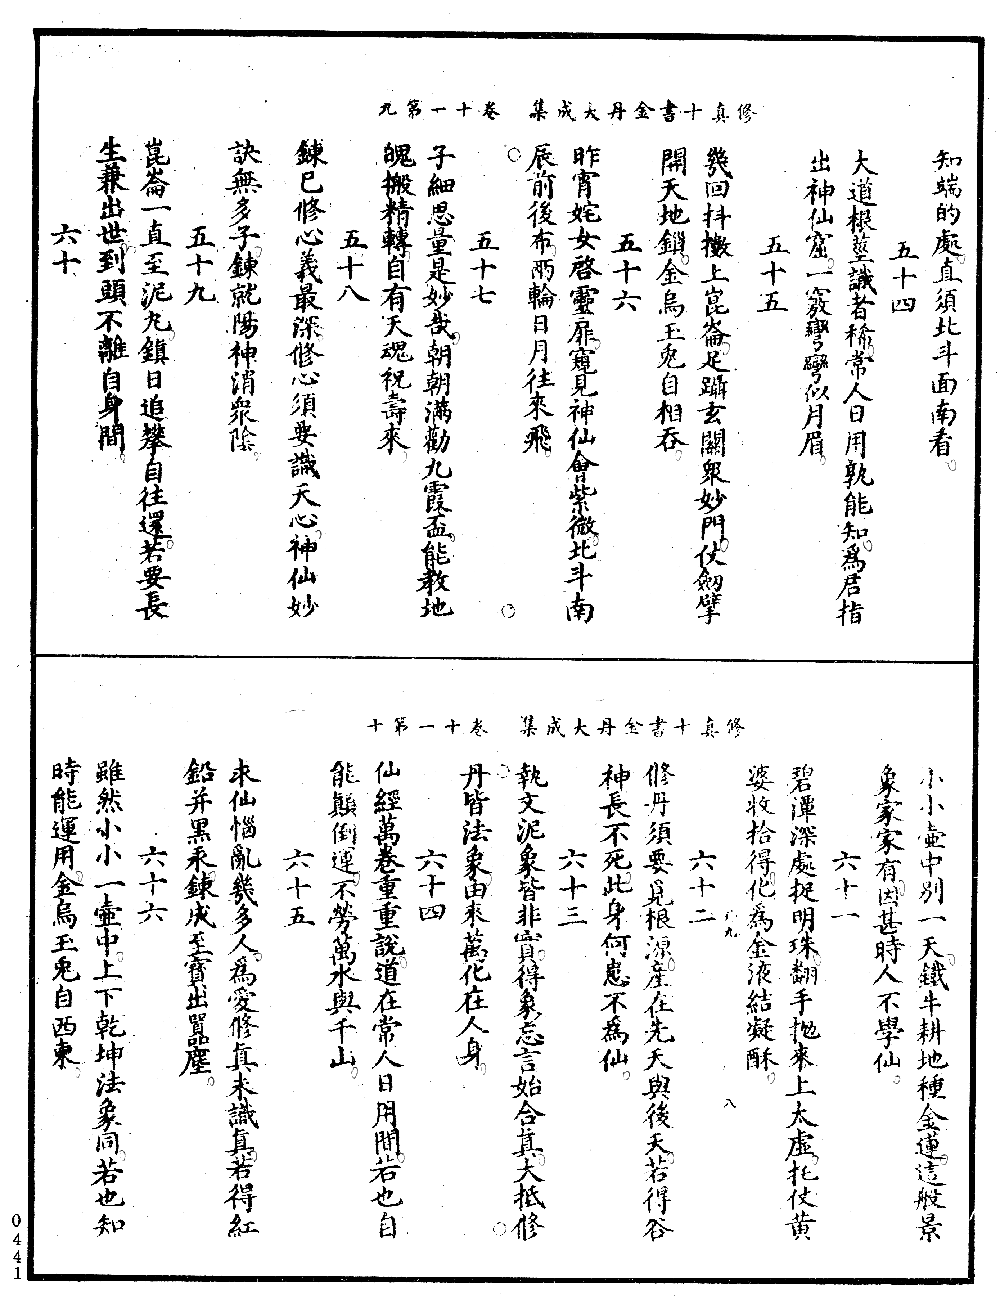 修真十書金丹大成集　卷十一第九
知端的處直須北斗面南看
五十四
大道根莖識者稀常人日用孰能知爲君指
出神仙窟一竅彎彎似月眉
五十五
幾回抖擻上崑崙足躡玄關衆妙門仗劒擘
開天地鎻金烏玉兎自相吞
五十六
昨宵姹女啓靈扉窺見神仙會紫微北斗南
辰前後布兩輪日月往來飛
五十七
子細思量是妙哉朝朝滿勸九霞盃能教地
魄搬精轉自有天魂祝壽來
五十八
鍊己修心義最深修心須要識天心神仙妙
訣無多子鍊就陽神消衆陰
五十九
崑崙一直至泥丸鎮日追攀自往還若要長
生兼出世到頭不離自身間
六十
修真十書金丹大成集　卷十一第十
小小壷中別一天鐵牛耕地種金蓮這般景
象家家有因甚時人不學仙
六十一
碧潭深處捉明珠翻手抛來上太虛托仗黄
婆收拾得化爲金液結凝酥
六十二
修丹須要覓根源産在先天與後天若得谷
神長不死此身何患不爲仙
六十三
執文泥象皆非實得象忘言始合真大抵修
丹皆法象由來萬化在人身
六十四
仙經萬卷重重說道在常人日用間若也自
能顛倒運不勞萬水與千山
六十五
求仙惱亂幾多人爲愛修真未識真若得紅
鉛并黑汞鍊成至寳出囂塵
六十六
雖然小小一壷中上下乾坤法象同若也知
時能運用金烏玉兎自西東
0441